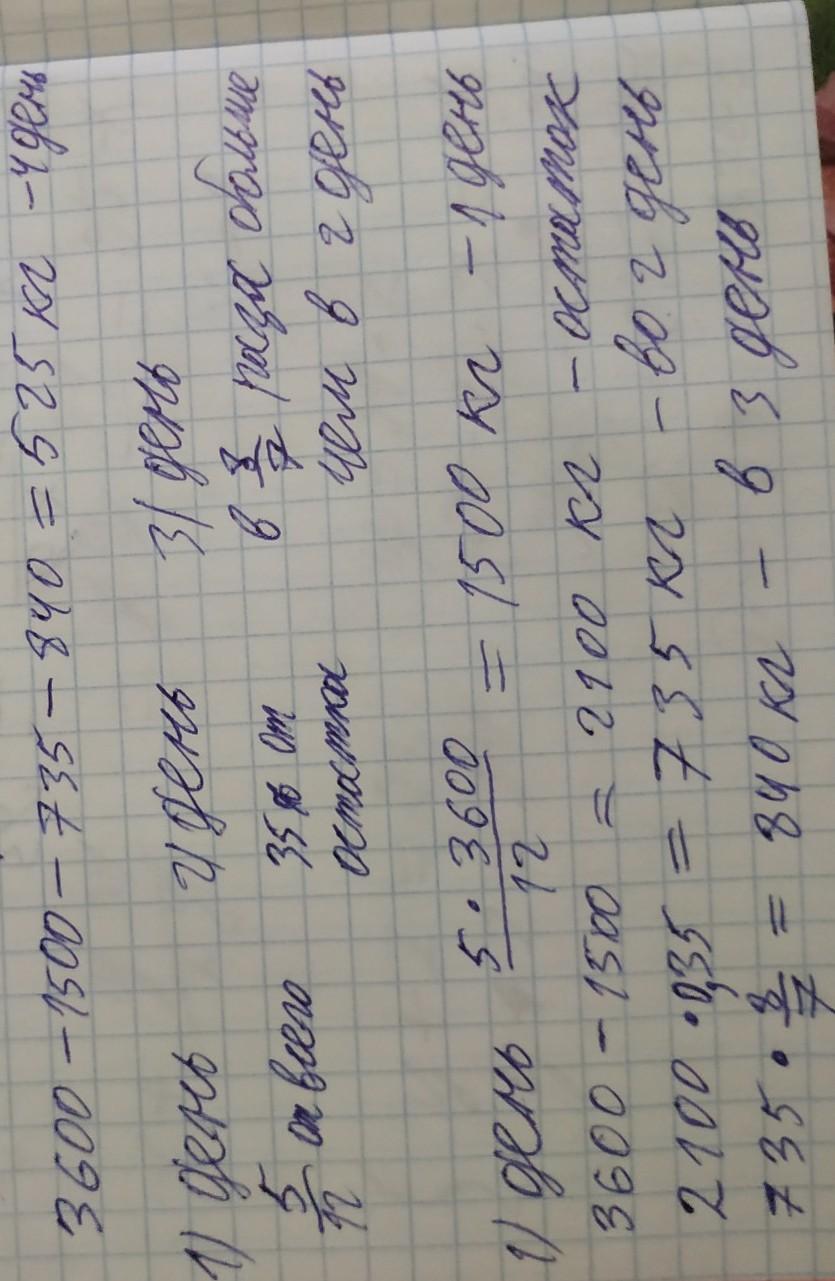 3600 – 1500 – 735 – 840 = 525 кг – 4 день
1) день 2) день 3) день
5/12 от всего 35% от остатка в 8/7 раза больше чем в 2 день
1) день 5 · 3600 / 12 = 1500 кг – 1 день
3600 – 1500 = 2100 кг – остаток
2100 · 0,35 = 735 кг – во 2 день
735 · 8/7 = 840 кг – в 3 день